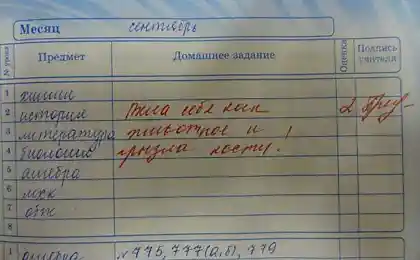 Месяц сентябрь
№ урока Предмет Домашнее задание Оценка Подпись учителя
1 химия
2 история Вела себя как 2
3 литература животное и
4 биология грызла кости!
5 алгебра
6 мхк
7 обж
8
1 алгебра № 775, 777(а,б), 779